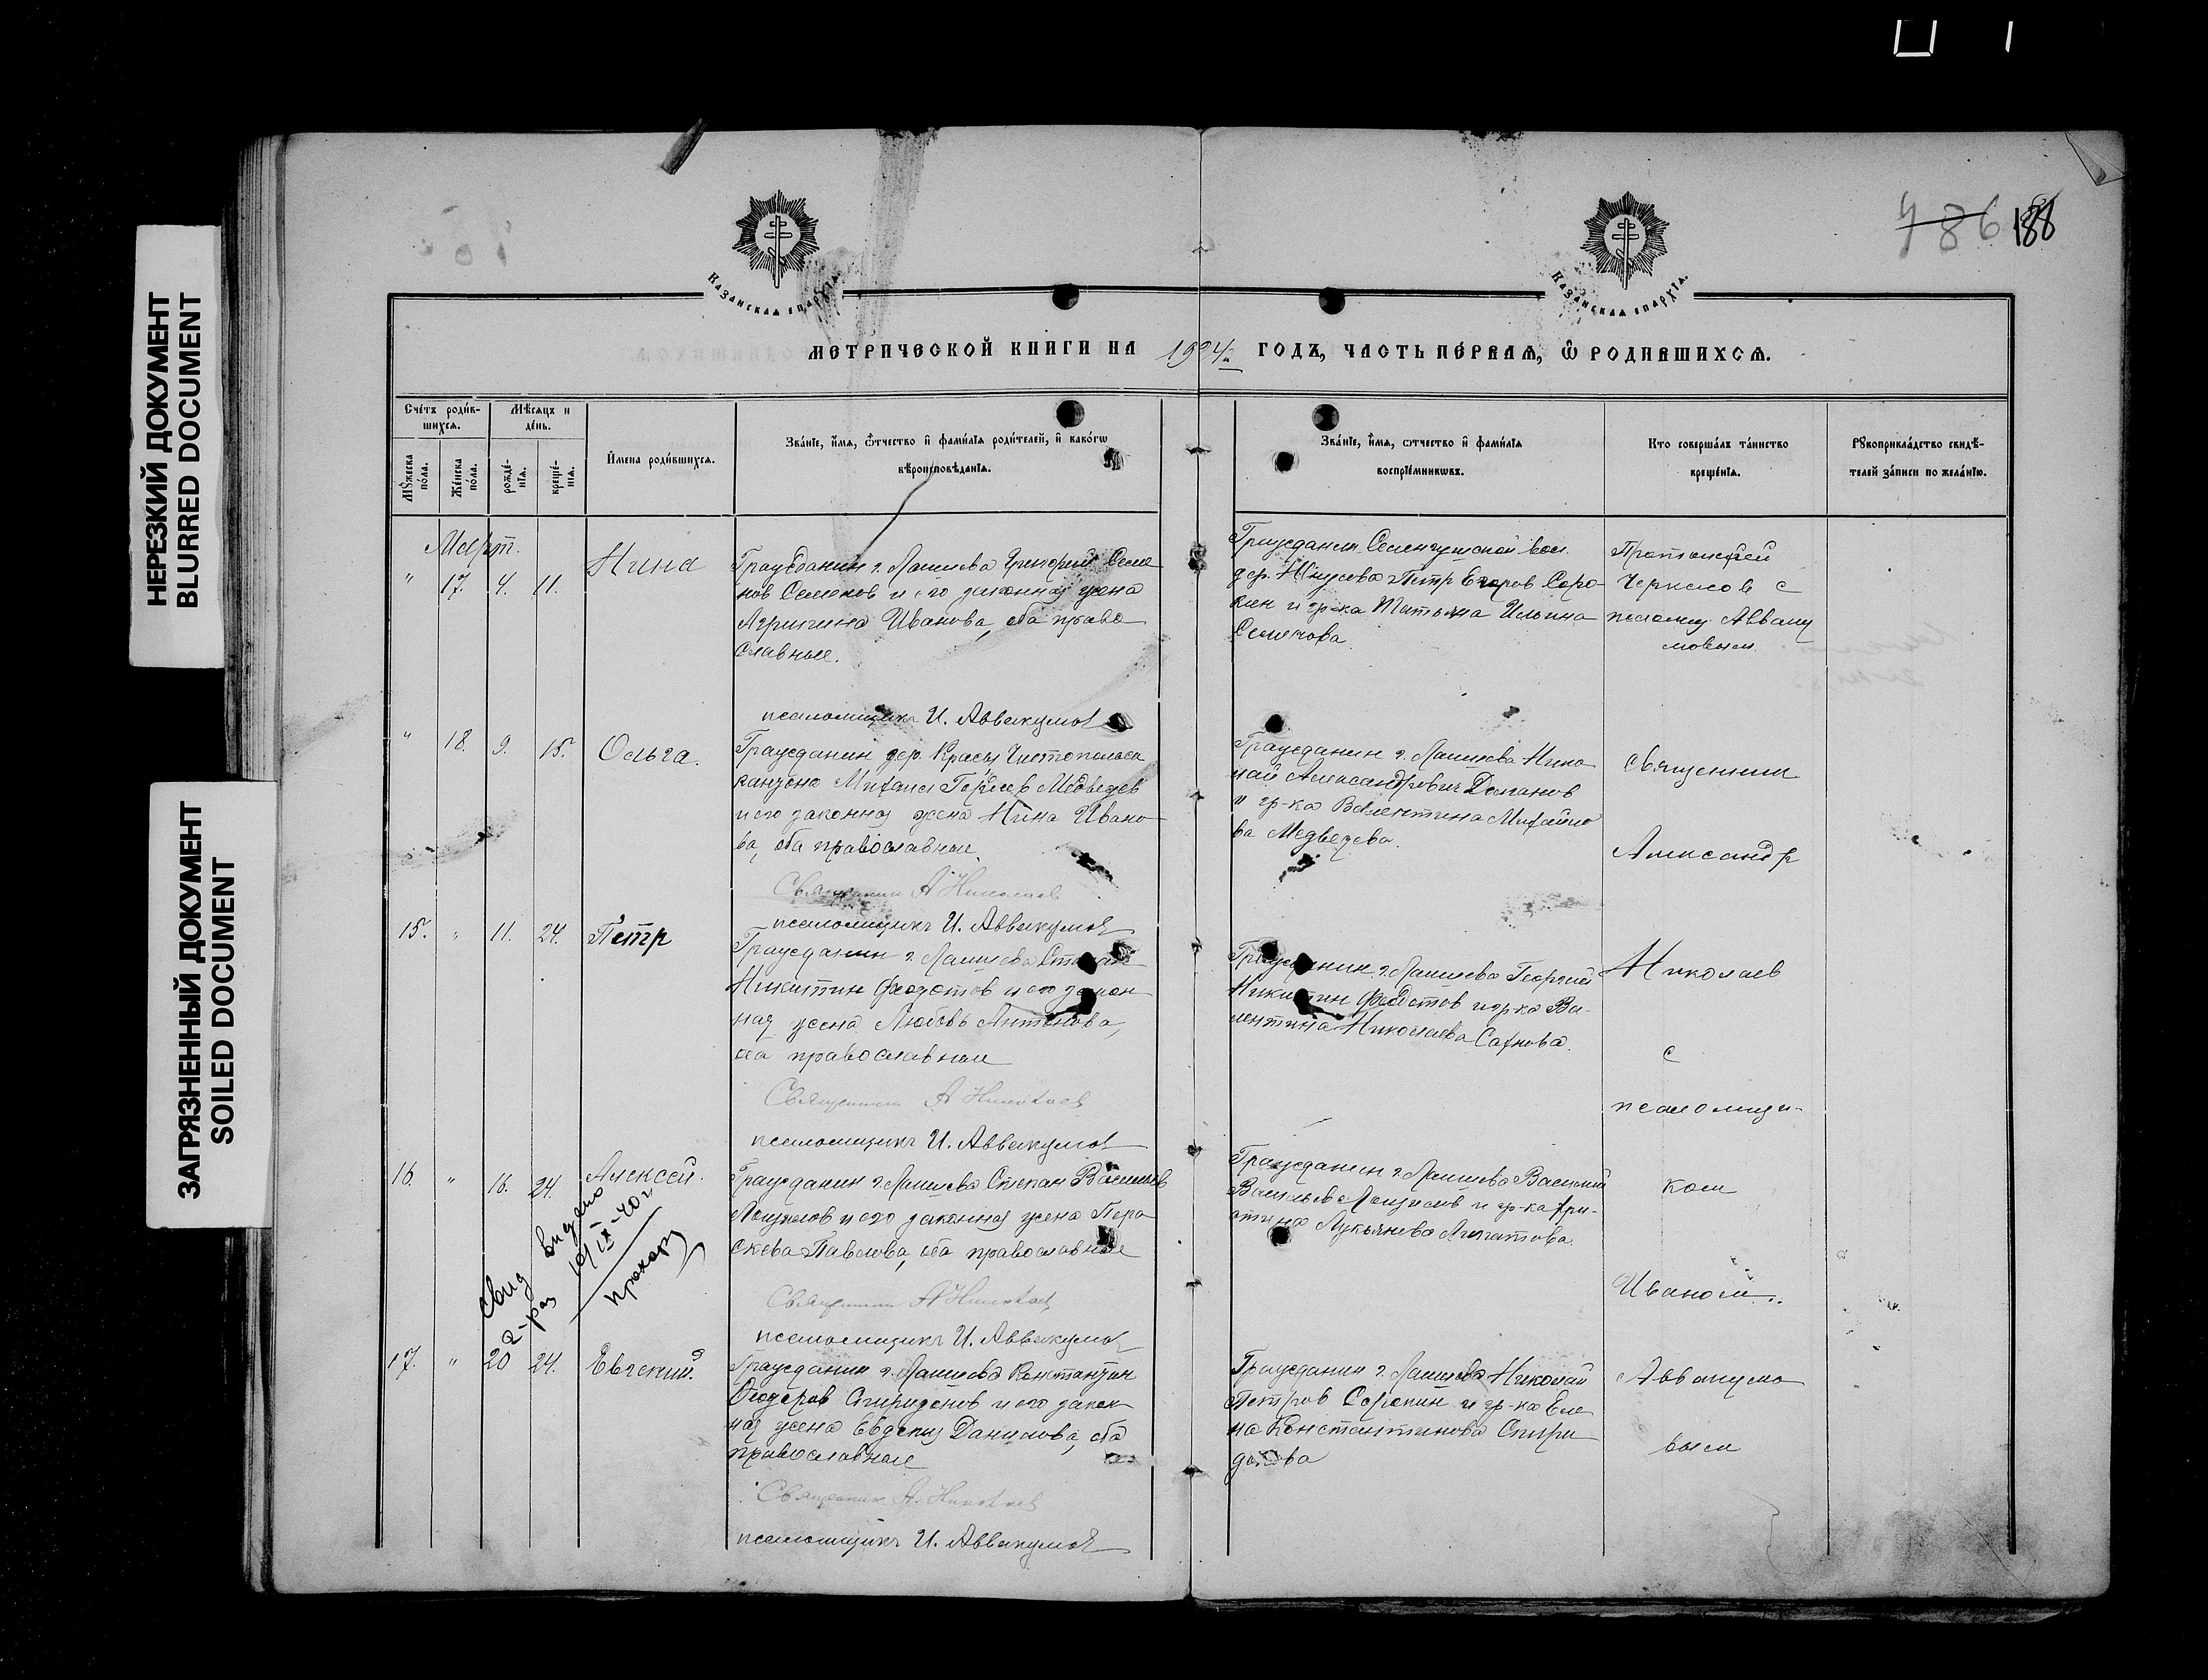 НЕРЕЗКИЙ ДОКУМЕНТ
BLURRED DOCUMENT
ЗАГРЯЗНЕННЫЙ ДОКУМЕНТ
SOILED DOCUMENT
486 188
Казанская епархія.
Казанская епархія.
МЕТРИЧЕСКОЙ КНИГИ НА 1924 ГОДЪ, ЧАСТЬ ПЕРВАЯ, Ѡ РОДИВШИХСѦ.
Счетъ родив-
шихсѧ.
Мѣсѧцъ и
день.
Мꙋжеска
пола.
Женска
пола.
рожде-
нїѧ.
креще-
нїѧ.
Имена родившихсѧ.
Званїе, имѧ, ѿчество и фамилїѧ родителей, и какогѡ
вѣроисповѣданїѧ.
Званїе, имѧ, ѿчество и фамилїѧ
воспрїемникѡвъ.
Кто совершалъ таинство
крещенїѧ.
Рꙋкоприкладство свидѣ-
телей записи по желанїю.
Март.
" 17. 4. 11. Нина
Гражданин г. Лаишева Григорий Семе
нов Семенов и его законная жена
Агрипина Иванова, оба право
славные.
псаломщикъ И. Аввакумов
Гражданин Селенгушской вол.
дер. Петр Егоров Соро-
кин и гр-ка Татьяна Ильина
Семенова.
Протоиерей
Черкасов с
псаломщ. Аввакумовым.
" 18. 9. 15. Ольга.
Гражданин дер. Красн. Чистопольск
кантона Михаил Медведев
и его законная жена Нина Ивано-
ва, оба православные.
Священник А Николаев
псаломщикъ И. Аввакумов
Гражданин г. Лаишева Нико
лай Александрович Доманов
и гр-ка Валентина Михайло
ва Медведева.
Священник
Александр
15. " 11. 24. Петр
Гражданин г. Лаишева Степан
Никитин Федотов и его закон
ная жена Любовь Антонова,
оба православные
Священник А Николаев
псаломщикъ И. Аввакумов
Гражданин г. Лаишева Георгий
Никитин Федотов и гр-ка Ва-
лентина Николаева
Николаев
с
псаломщи-
16. " 16. 24. Алексей.
Гражданин г. Лаишева Степан Васильев
и его законная жена Пара
скева Павлова, оба православные
Священник А Николаев
псаломщикъ И. Аввакумов
Гражданин г. Лаишева Василий
Васильев и гр-ка Хри-
стина Лукьянова
ком
Иваном
Свид выдано
2-раз 19/IX-40 г
17. " 20 24. Евгений.
Гражданин г. Лаишева Константин
Феодоров Спиридонов и его закон
ная жена Евдокия Данилова, оба
православные
Священник А. Николаев
псаломщикъ И. Аввакумов
Гражданин г. Лаишева Николай
Петров Сорокин и гр-ка Еле
на Константинова Спири
донова
Аввакумо
вым